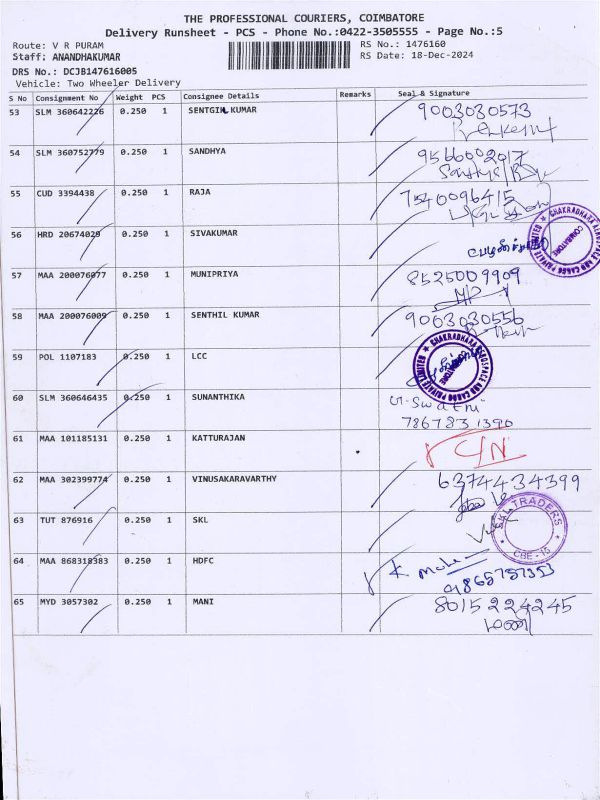 THE PROFESSIONAL COURIERS, COIMBATORE
Delivery Runsheet - PCS - Phone No.:0422-3505555 - Page No.:5
Route: V R PURAM RS No.: 1476160
Staff: ANANDHAKUMAR RS Date: 18-Dec-2024
DRS No.: DCJB147616005
Vehicle: Two Wheeler Delivery
S No Consignment No Weight PCS Consignee Details Remarks Seal & Signature
53 SLM 360642226 0.250 1 SENTGIL KUMAR 9003030573
54 SLM 360752779 0.250 1 SANDHYA 9566002017
55 CUD 3394438 0.250 1 RAJA 7540096415
56 HRD 20674029 0.250 1 SIVAKUMAR
CHAKRADHARA AEROSPACE AND CARGO PRIVATE LIMITED COIMBATORE
57 MAA 200076077 0.250 1 MUNIPRIYA 8525009909
58 MAA 200076009 0.250 1 SENTHIL KUMAR 9003030556
59 POL 1107183 0.250 1 LCC
CHAKRADHARA AEROSPACE AND CARGO PRIVATE LIMITED COIMBATORE
60 SLM 360646435 0.250 1 SUNANTHIKA
7867831390
61 MAA 101185131 0.250 1 KATTURAJAN
62 MAA 302399774 0.250 1 VINUSAKARAVARTHY 6374434399
63 TUT 876916 0.250 1 SKL
SKL TRADERS CBE - 15
64 MAA 868318383 0.250 1 HDFC
65 MYD 3057302 0.250 1 MANI 8015224245
மணி